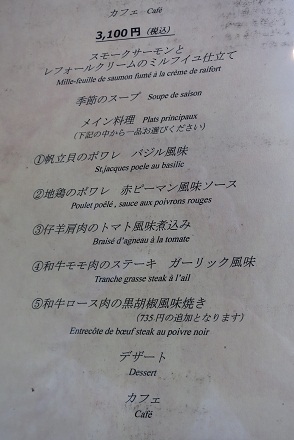 カフェ Café
3,100円(税込)
スモークサーモンと
レフォールクリームのミルフイユ仕立て
Mille-feuille de saumon fumé à la crème de raifort
季節のスープ Soupe de saison
メイン料理 Plats principaux
(下記の中から一品お選びください)
①帆立貝のポワレ バジル風味
St.jacques poele au basilic
②地鶏のポワレ 赤ピーマン風味ソース
Poulet poêlé , sauce aux poivrons rouges
③仔羊肩肉のトマト風味煮込み
Braisé d'agneau à la tomate
④和牛モモ肉のステーキ ガーリック風味
Tranche grasse steak à l'ail
⑤和牛ロース肉の黒胡椒風味焼き
(735円の追加となります)
Entrecôte de bœuf steak au poivre noir
デザート
Dessert
カフェ
Café